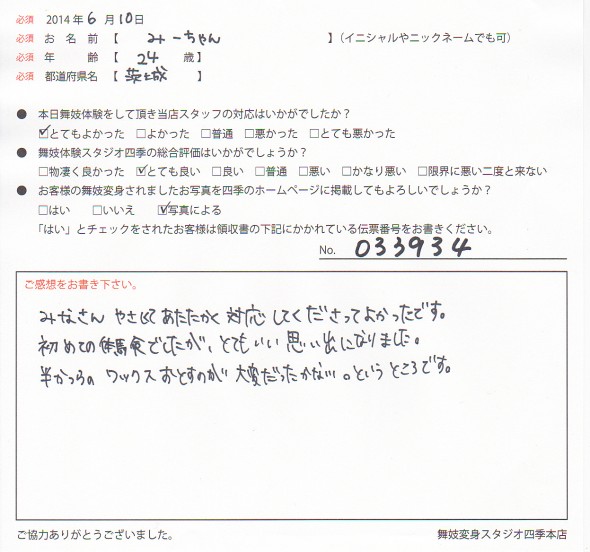 必須 2014年6月10日
必須 お名前【 みーちゃん 】(イニシャルやニックネームでも可)
必須 年齢【 24 歳】
必須 都道府県名【 茨城 】
● 本日舞妓体験をして頂き当店スタッフの対応はいかがでしたか?
☑とてもよかった □よかった □普通 □悪かった □とても悪かった
● 舞妓体験スタジオ四季の総合評価はいかがでしょうか?
□物凄く良かった ☑とても良い □良い □普通 □悪い □かなり悪い □限界に悪い二度と来ない
● お客様の舞妓変身されましたお写真を四季のホームページに掲載してもよろしいでしょうか?
□はい □いいえ ☑写真による
「はい」とチェックをされたお客様は領収書の下記にかかれている伝票番号をお書きください。
No. 033934
ご感想をお書き下さい。
みなさん やさしくて あたたかく 対応してくださってよかったです。
初めての体験でしたが、とてもいい思い出になりました。
半かつらの ワックスおとすのが 大変だったかな、、。というところです。
ご協力ありがとうございました。 舞妓変身スタジオ四季本店